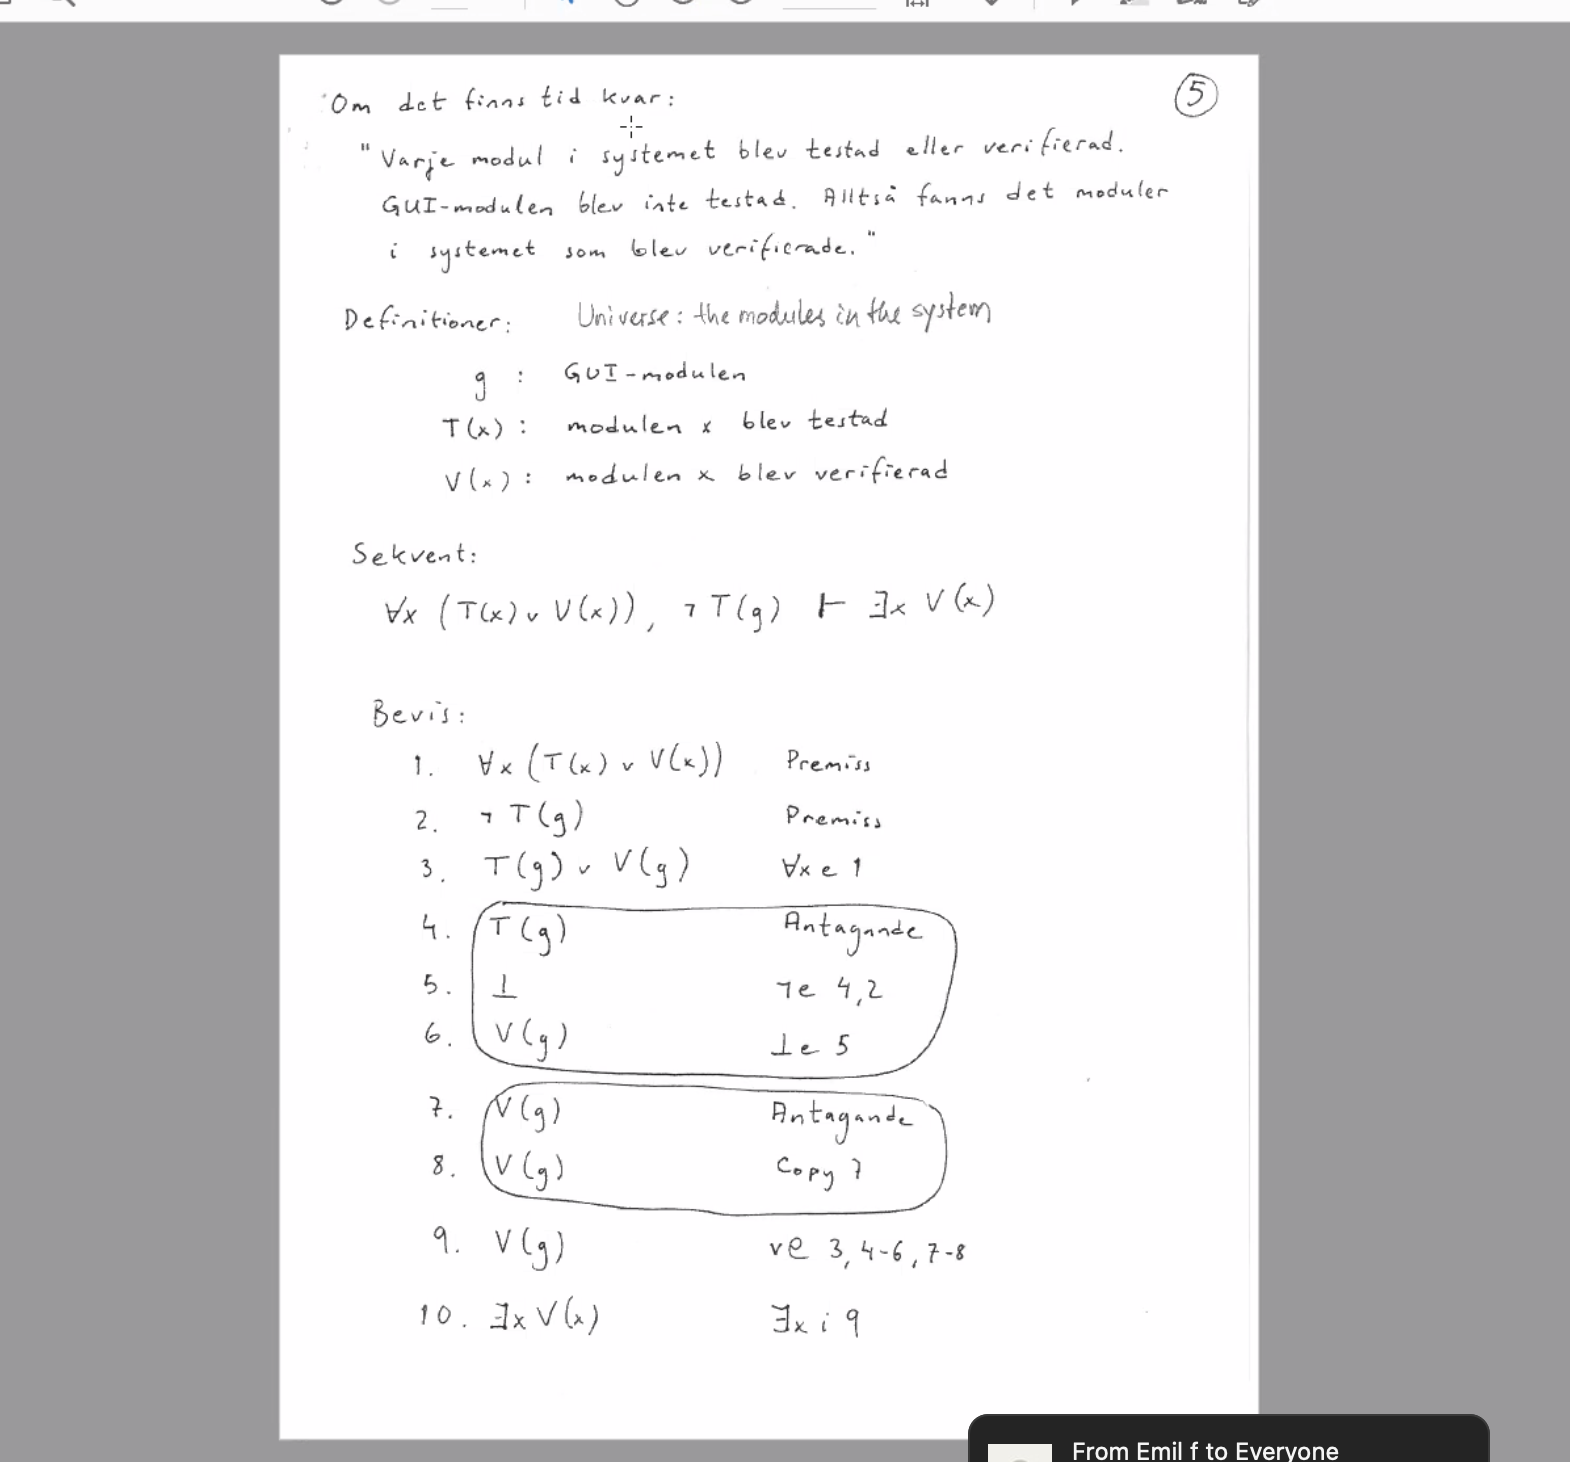 Om det finns tid kvar:
5
"Varje modul i systemet blev testad eller verifierad.
GUI-modulen blev inte testad. Alltså fanns det moduler
i systemet som blev verifierade."
Definitioner: Universe: the modules in the system
g : GUI-modulen
T(x) : modulen x blev testad
V(x) : modulen x blev verifierad
Sekvent:
∀x (T(x) ∨ V(x)), ¬T(g) ⊢ ∃x V(x)
Bevis:
1. ∀x (T(x) ∨ V(x)) Premiss
2. ¬T(g) Premiss
3. T(g) ∨ V(g) ∀x e 1
4. T(g) Antagande
5. ⊥ ¬e 4,2
6. V(g) ⊥e 5
7. V(g) Antagande
8. V(g) Copy 7
9. V(g) ∨e 3, 4-6, 7-8
10. ∃x V(x) ∃x i 9
From Emil f to Everyone